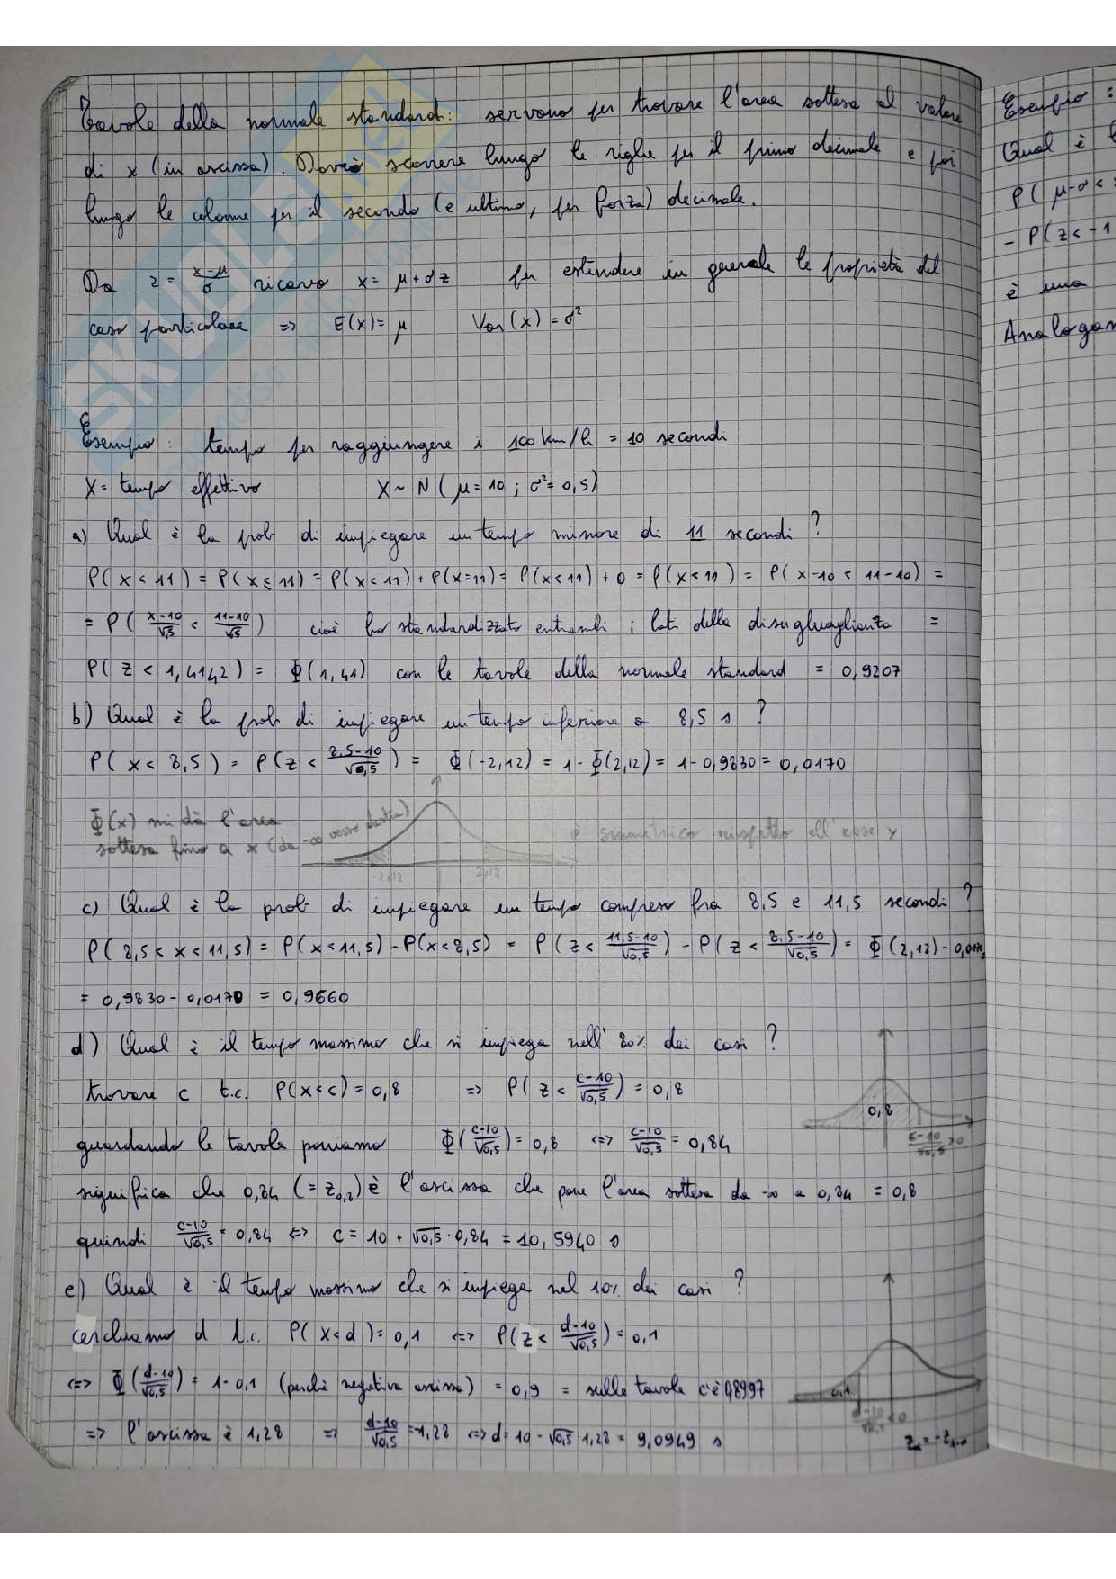 Tavole della normale standard: servono per trovare l'area sottesa al valore
di x (in ascissa). Dovrò scorrere lungo le righe per il primo decimale e poi
lungo le colonne per il secondo (e ultimo, per forza) decimale.
Da z = (x-μ)/σ ricavo x = μ+σz per estendere in generale le proprietà del
caso particolare => E(x)=μ Var(x)=σ²
Esempio: tempo per raggiungere i 100 km/h = 10 secondi
X = tempo effettivo X~N(μ=10; σ²=0,5)
a) Qual è la prob di impiegare un tempo minore di 11 secondi?
P(x<11) = P(x≤11) = P(x<11)+P(x=11) = P(x<11)+0 = P(x<11) = P(x-10 < 11-10) =
= P((x-10)/√5 < (11-10)/√5) cioè ho standardizzato entrambi i lati della disuguaglianza =
P(z<1,4142) = Φ(1,41) con le tavole della normale standard = 0,9207
b) Qual è la prob di impiegare un tempo inferiore a 8,5 s?
P(x<8,5) = P(z < (8,5-10)/√0,5) = Φ(-2,12) = 1-Φ(2,12) = 1-0,9830 = 0,0170
Φ(x) mi dà l'area
sottesa fino a x (da -∞ verso destra)
è simmetrico rispetto all'asse y
-2,12 2,12
c) Qual è la prob di impiegare un tempo compreso fra 8,5 e 11,5 secondi?
P(8,5<x<11,5) = P(x<11,5)-P(x<8,5) = P(z < (11,5-10)/√0,5) - P(z < (8,5-10)/√0,5) = Φ(2,12)-0,0170
= 0,9830-0,0170 = 0,9660
d) Qual è il tempo massimo che si impiega nell'80% dei casi?
trovare c t.c. P(x<c)=0,8 => P(z < (c-10)/√0,5) = 0,8
0,8
(c-10)/√0,5 >0
guardando le tavole poniamo Φ((c-10)/√0,5) = 0,8 <=> (c-10)/√0,5 = 0,84
significa che 0,84 (= z0,8) è l'ascissa che pone l'area sottesa da -∞ a 0,84 = 0,8
quindi (c-10)/√0,5 = 0,84 <=> c = 10 + √0,5·0,84 = 10,5940 s
e) Qual è il tempo massimo che si impiega nel 10% dei casi?
cerchiamo d t.c. P(X<d)=0,1 <=> P(z < (d-10)/√0,5) = 0,1
<=> Φ((d-10)/√0,5) = 1-0,1 (perché negativa ascissa) = 0,9 = sulle tavole c'è 0,8997
0,1
=> l'ascissa è 1,28 => (d-10)/√0,5 = -1,28 <=> d = 10 - √0,5 1,28 = 9,0949 s
Esempio:
Qual è l
P(μ-σ<
- P(z<-1
è una
Analogam